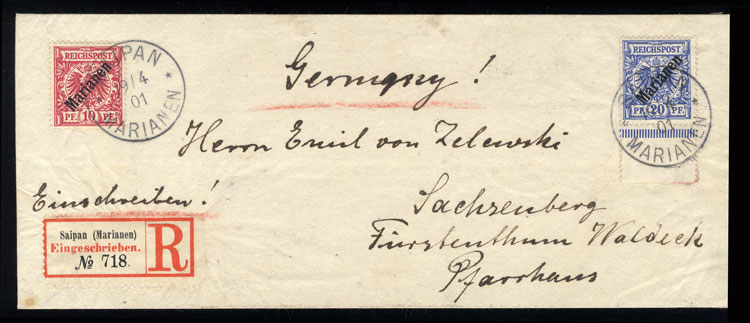 REICHSPOST
Marianen
PF. 10 PF.
SAIPAN
9/4
01
* MARIANEN *
Germany!
REICHSPOST
Marianen
PF. 20 PF.
01
* MARIANEN *
Herrn Emil von Zelewski
Einschreiben!
Sachzenberg
Fürstenthum Waldeck
Pfarrhaus
Saipan (Marianen)
Eingeschrieben.
№ 718.
R